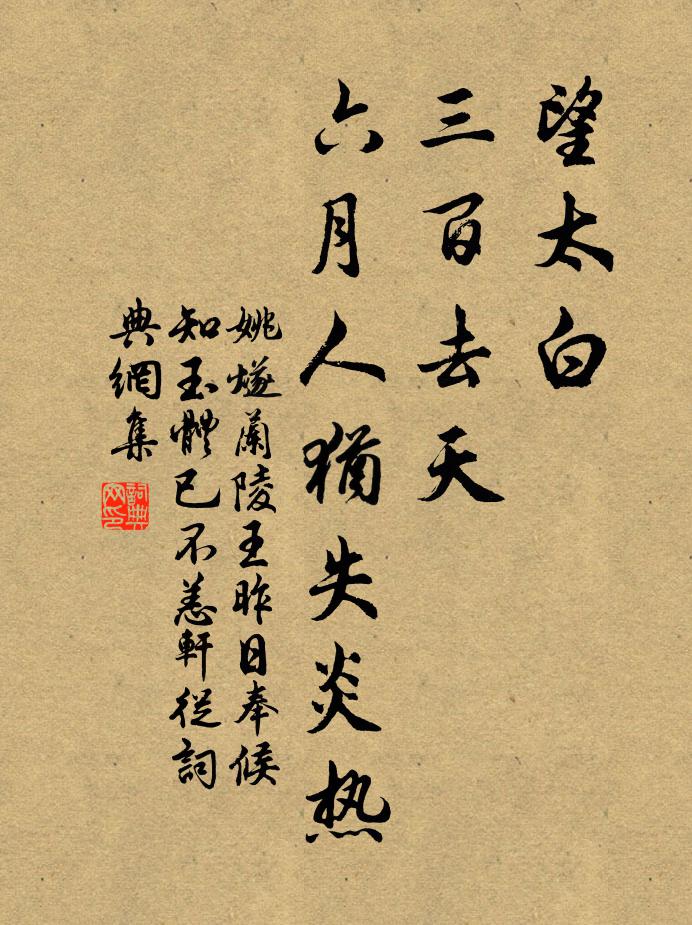 望太白
三百去天
六月人猶失炎热
姚燧蘭陵王昨日奉候
知玉體已不恙軒從詞
典網集
詞典
网印